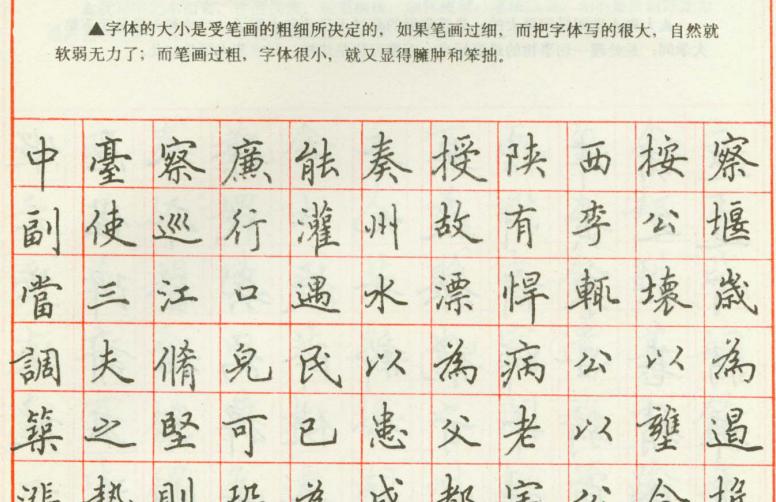 ▲字体的大小是受笔画的粗细所决定的，如果笔画过细，而把字体写的很大，自然就
软弱无力了；而笔画过粗，字体很小，就又显得臃肿和笨拙。
中臺察廉能奏授陕西按察
副使巡行灌州故有李公堰
當三江口遇水漂悍輒壞歲
調夫脩皃民以為病公以為
築之堅可已患父老以壅遏
勢則為成都